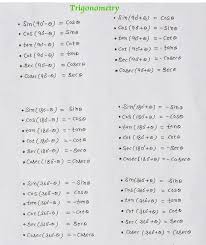 Trigonometry
• Sin(90-θ) = Cosθ
• Cos(90-θ) = Sinθ
• tan(90-θ) = Cotθ
• Cot(90-θ) = tanθ
• Sec(90-θ) = Cosecθ
• Cosec(90-θ) = Secθ
• Sin(90+θ) = Cosθ
• Cos(90+θ) = -Sinθ
• tan(90+θ) = -Cotθ
• Cot(90+θ) = -tanθ
• Sec(90+θ) = -Cosecθ
• Cosec(90+θ) = Secθ
• Sin(180-θ) = Sinθ
• Cos(180-θ) = -Cosθ
• tan(180-θ) = -tanθ
• Cot(180-θ) = -Cotθ
• Sec(180-θ) = -Secθ
• Cosec(180-θ) = Cosecθ
• Sin(180+θ) = -Sinθ
• Cos(180+θ) = -Cosθ
• tan(180+θ) = tanθ
• Cot(180+θ) = Cotθ
• Sec(180+θ) = -Secθ
• Cosec(180+θ) = -Cosecθ
• Sin(360-θ) = -Sinθ
• Cos(360-θ) = Cosθ
• tan(360-θ) = -tanθ
• Cot(360-θ) = -Cotθ
• Sec(360-θ) = Secθ
• Cosec(360-θ) = -Cosecθ
• Sin(360+θ) = Sinθ
• Cos(360+θ) = Cosθ
• tan(360+θ) = tanθ
• Cot(360+θ) = Cotθ
• Sec(360+θ) = Secθ
• Cosec(360+θ) = Cosecθ